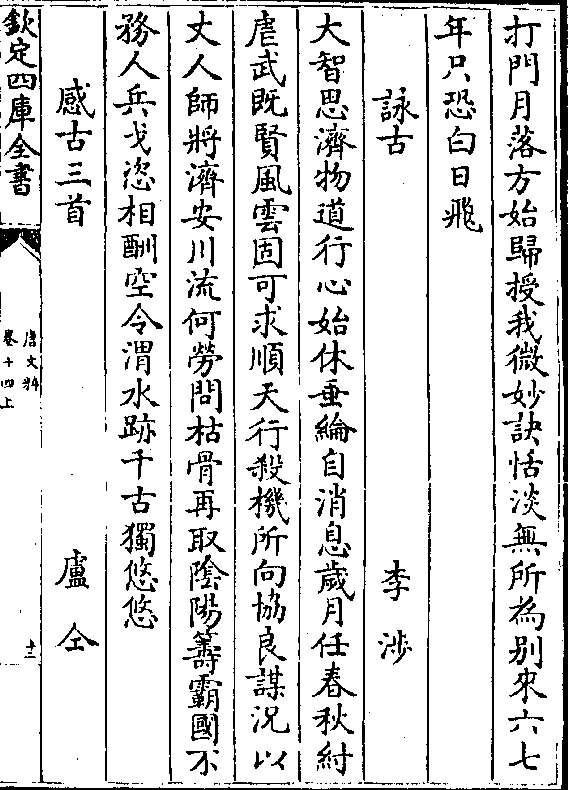 打門月落方始歸授我微妙訣恬淡無所為别來六七
年只恐白日飛
詠古 李涉
大智思濟物道行心始休垂綸自消息歲月任春秋紂
虐武既賢風雲固可求順天行殺機所向協良謀況以
丈人師將濟安川流何勞問枯骨再取陰陽籌霸國不
務人兵戈恣相酬空令渭水跡千古獨悠悠
感古三首 盧仝
欽定四庫全書
唐文粹
卷十四上
十三